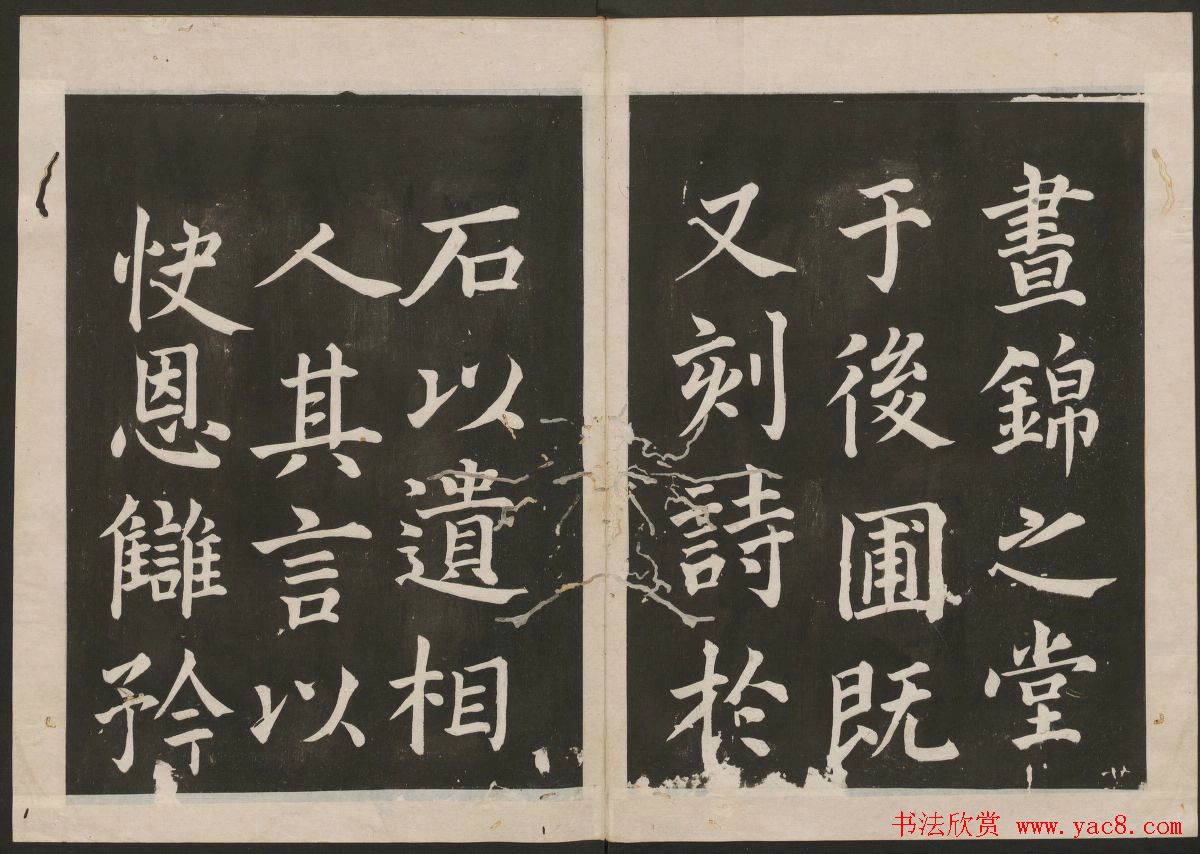 晝錦之堂
于後圃既
又刻詩於
石以遺相
人其言以
快恩讎矜
书法欣赏 www.yac8.com